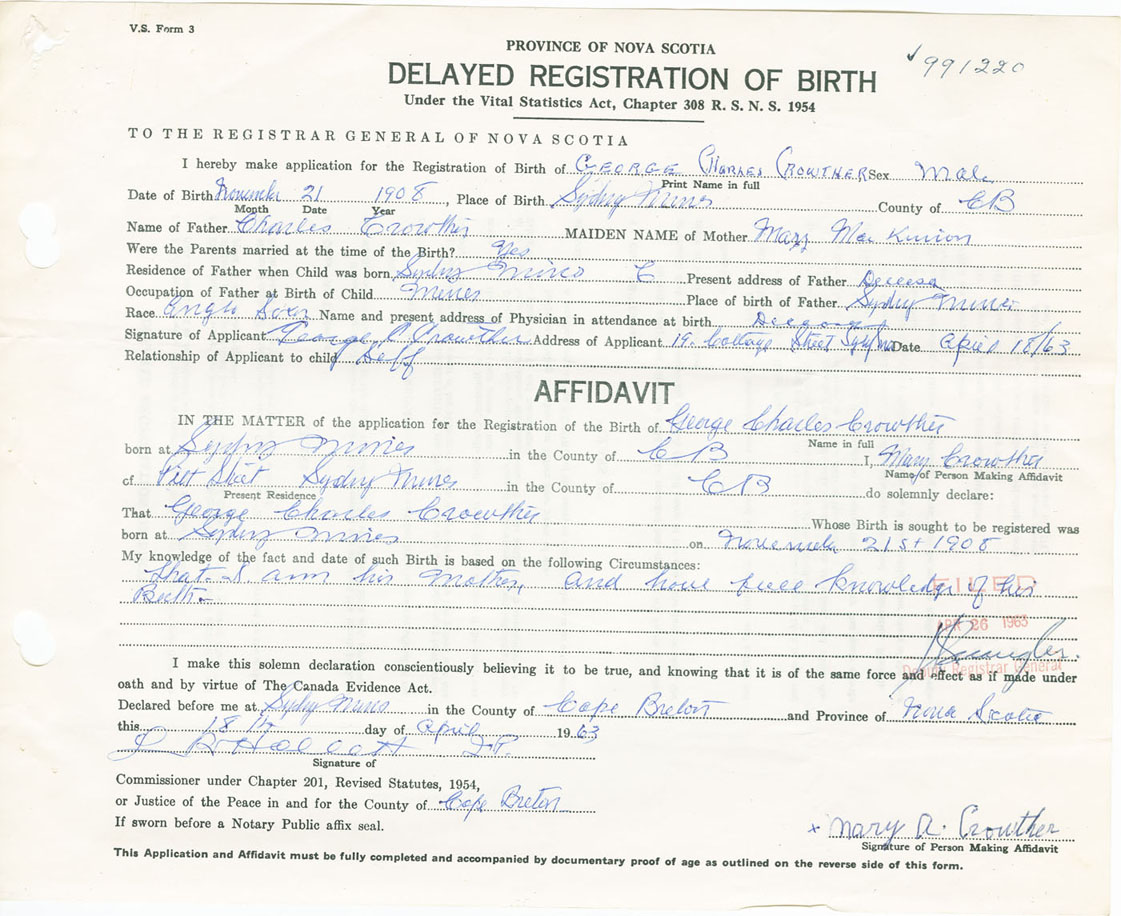 V.S. Form 3
PROVINCE OF NOVA SCOTIA
991220
DELAYED REGISTRATION OF BIRTH
Under the Vital Statistics Act, Chapter 308 R. S. N. S. 1954
TO THE REGISTRAR GENERAL OF NOVA SCOTIA
I hereby make application for the Registration of Birth of GEORGE CHARLES CROWTHER Sex Male
Print Name in full
Date of Birth November 21 1908, Place of Birth Sydney Mines County of CB
Month Date Year
Name of Father Charles Crowther MAIDEN NAME of Mother Mary MacKinnon
Were the Parents married at the time of the Birth? Yes
Residence of Father when Child was born Sydney Mines C Present address of Father
Occupation of Father at Birth of Child Miner Place of birth of Father Sydney Mines
Race Anglo Name and present address of Physician in attendance at birth
Signature of Applicant George C Crowther Address of Applicant 19 Cottage Street Date April 18/63
Relationship of Applicant to child Self
AFFIDAVIT
IN THE MATTER of the application for the Registration of the Birth of George Charles Crowther
Name in full
born at Sydney Mines in the County of CB I, Mary Crowther
Name of Person Making Affidavit
of Pitt Street Sydney Mines in the County of CB do solemnly declare:
Present Residence
That George Charles Crowther Whose Birth is sought to be registered was
born at Sydney Mines on November 21st 1908
My knowledge of the fact and date of such Birth is based on the following Circumstances:
that I am his Mother, and have full knowledge of his
Birth
FILED
APR 26 1963
Deputy Registrar General
I make this solemn declaration conscientiously believing it to be true, and knowing that it is of the same force and effect as if made under
oath and by virtue of The Canada Evidence Act.
Declared before me at Sydney Mines in the County of Cape Breton and Province of Nova Scotia
this 18th day of April 1963
J.P.
Signature of
Commissioner under Chapter 201, Revised Statutes, 1954,
or Justice of the Peace in and for the County of Cape Breton
If sworn before a Notary Public affix seal.
x Mary A. Crowther
Signature of Person Making Affidavit
This Application and Affidavit must be fully completed and accompanied by documentary proof of age as outlined on the reverse side of this form.